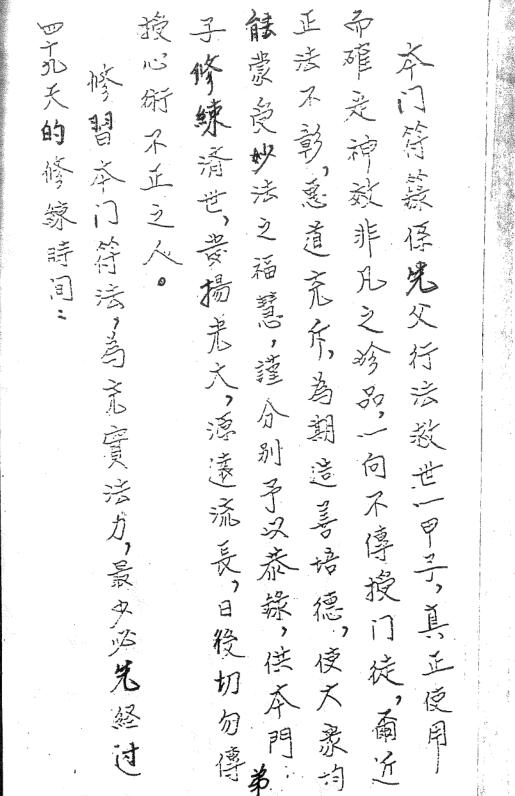 本门符籙係先父行法救世一甲子，真正使用
而確是神效非凡之珍品，一向不傳授门徒，爾近
正法不彰，惡道充斥，為期造善培德，使大衆均
能蒙受妙法之福慧，謹分别予以恭錄，供本門弟
子修練済世，發揚光大，源遠流長，日後切勿傳
授心術不正之人。
修習本门符法，為充實法力，最少必先経过
四十九天的修錬時间：